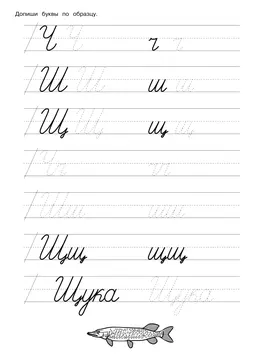 Допиши буквы по образцу.
Ч Ч ч ч
Ш Ш Ш ш ш
Щ Щ щ щ
Чч чч
Шш шш
Щщ щщ
Щука Щука